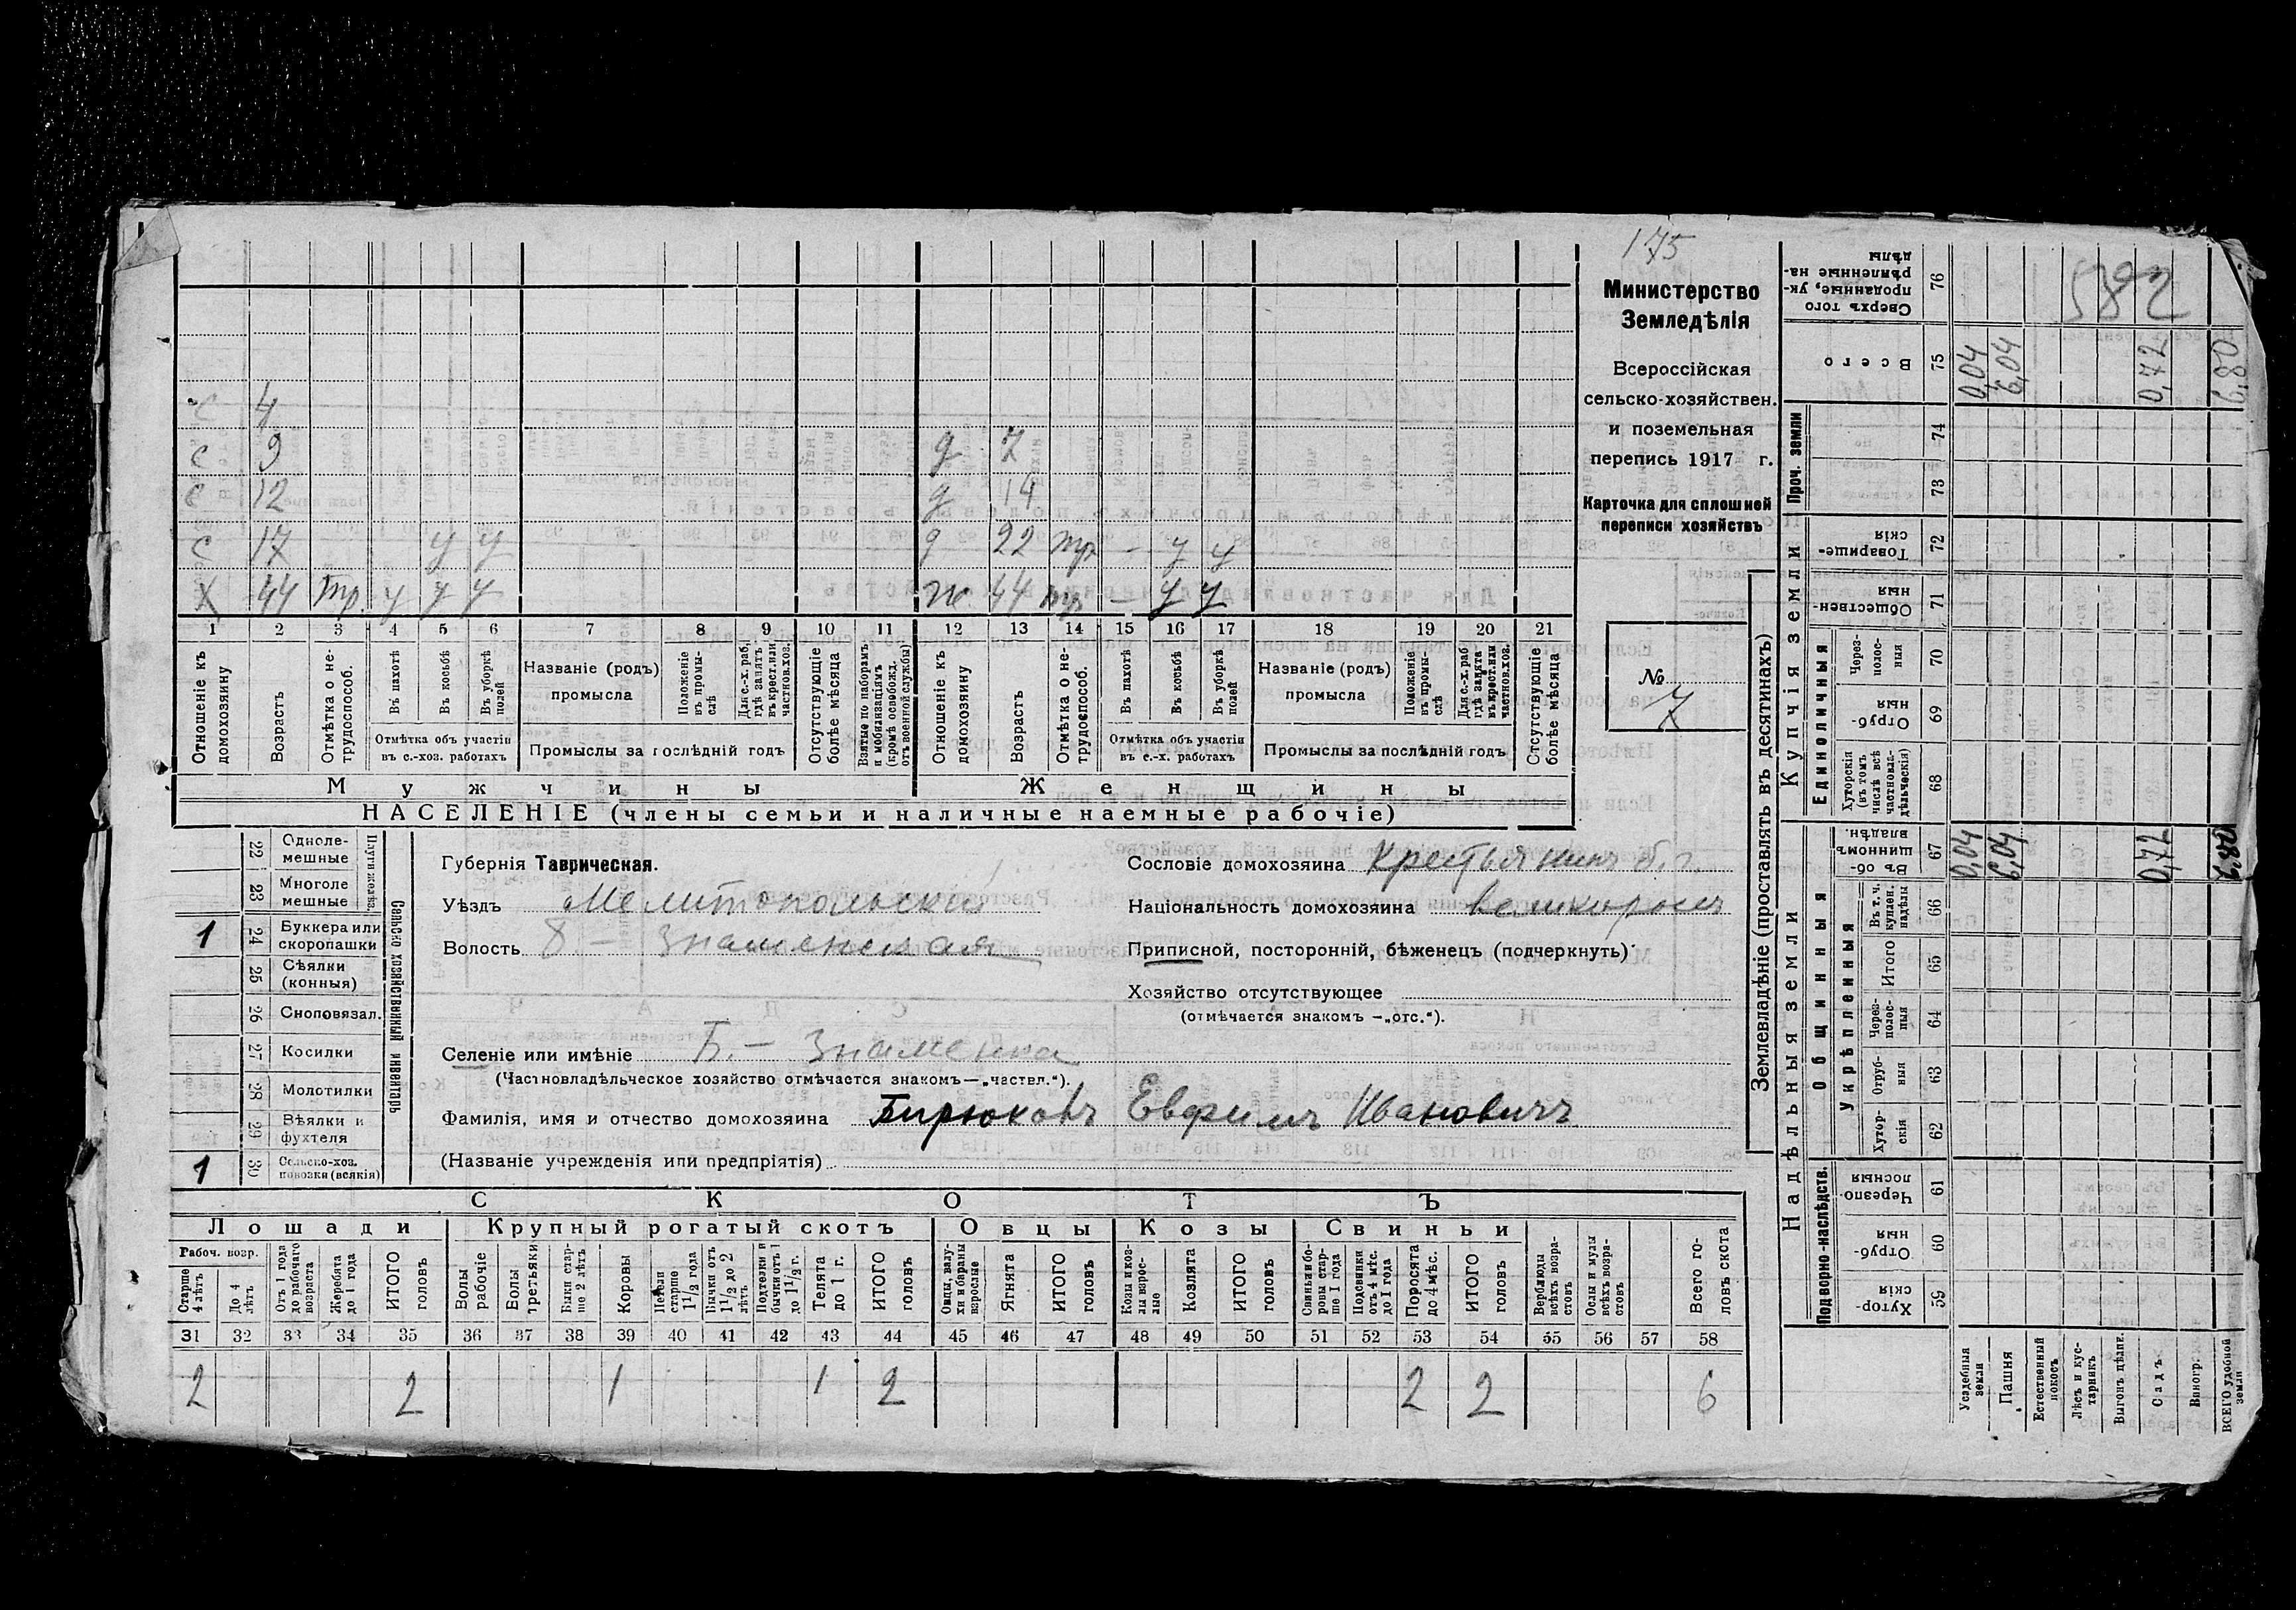 175
Министерство
Земледѣлія
Всероссійская
сельско-хозяйствен.
и поземельная
перепись 1917 г.
Карточка для сплошней
переписи хозяйствъ
№
7
с 4
с 9 д 7
с 12 д 14
с 17 у у д 22 тр - у у
Х 44 тр. у у у ж. 44 тр - у у
1 2 3 4 5 6 7 8 9 10 11 12 13 14 15 16 17 18 19 20 21
Отношеніе къ домохозяину
Возрастъ
Отмѣтка о не-трудоспособ.
Въ пахотѣ
Въ косьбѣ
Въ уборкѣ полей
Отмѣтка объ участіи въ с.-хоз. работахъ
Названіе (родъ) промысла
Положеніе въ промы-слѣ
Для с.-х. раб. гдѣ занятъ въ крест. или частнов. хоз.
Промыслы за послѣдній годъ
Отсутствующіе болѣе мѣсяца
Взятые по наборамъ и мобилизаціямъ (кромѣ освобожд. отъ военной службы)
Отношеніе къ домохозяину
Возрастъ
Отмѣтка о не-трудоспособ.
Въ пахотѣ
Въ косьбѣ
Въ уборкѣ полей
Отмѣтка объ участіи въ с.-х. работахъ
Названіе (родъ) промысла
Положеніе въ промы-слѣ
Для с.-х. раб. гдѣ занята въ крест. или частнов. хоз.
Промыслы за послѣдній годъ
Отсутствующіе болѣе мѣсяца
Мужчины Женщины
НАСЕЛЕНІЕ (члены семьи и наличные наемные рабочіе)
Сельско хозяйственный инвентарь
Плуги желѣз.
22 Одноле-мешные
23 Многоле мешные
1 24 Буккера или скоропашки
25 Сѣялки (конныя)
26 Сноповязал.
27 Косилки
28 Молотилки
29 Вѣялки и фухтеля
1 30 Сельско-хоз. повозки (всякія)
Губернія Таврическая.
Уѣздъ Мелитопольскій
Волость Б.- Знаменская
Селеніе или имѣніе Б.- Знаменка
(Частновладѣльческое хозяйство отмѣчается знакомъ—„частвл.“).
Фамилія, имя и отчество домохозяина Бирюковъ Евфимъ Ивановичъ
(Названіе учрежденія или предпріятія)
Сословіе домохозяина Крестьянинъ
Національность домохозяина великороссъ
Приписной, посторонній, бѣженецъ (подчеркнуть)
Хозяйство отсутствующее
(отмѣчается знакомъ —„отс.“).
СКОТЪ
Лошади Крупный рогатый скотъ Овцы Козы Свиньи
Рабоч. возр.
Старше 4 лѣтъ
До 4 лѣтъ
Отъ 1 года до рабочаго возраста
Жеребята до 1 года
ИТОГО головъ
Волы рабочіе
Волы третьяки
Быки стар-ше 2 лѣтъ
Коровы
Нетели старше 1 1/2 года
Бычки отъ 1 1/2 до 2 лѣтъ
Подтелки и бычки отъ 1 до 1 1/2 г.
Телята до 1 г.
ИТОГО головъ
Овцы, валу-хи и бараны взрослые
Ягнята
ИТОГО головъ
Козы и коз-лы взрос-лые
Козлята
ИТОГО головъ
Свиньи и бо-ровы стар-ше 1 года
Подсвинки отъ 4 мѣс. до 1 года
Поросята до 4 мѣс.
ИТОГО головъ
Верблюды всѣхъ возра-стовъ
Ослы и мулы всѣхъ возра-стовъ
Всего го-ловъ скота
31 32 33 34 35 36 37 38 39 40 41 42 43 44 45 46 47 48 49 50 51 52 53 54 55 56 57 58
2 2 1 1 2 2 2 6
Землевладѣніе (проставлять въ десятинахъ)
Надѣльныя земли Купчія земли Проч. земли
Подворно-наслѣдств.
Общинныя
Укрѣпленныя
Единоличныя
Хутор-скія 59
Отруб-ныя 60
Черезпо-лосныя 61
Хутор-скія 62
Отруб-ныя 63
Через-полос-ныя 64
Итого 65
Въ т. ч. куплен. надѣлы 66
Въ об-щинномъ владѣн. 67
Хуторскія (въ томъ числѣ всѣ частновла-дѣльческія) 68
Отруб-ныя 69
Через-полос-ныя 70
Обществен-ныя 71
Товарище-скія 72
73
74
Всего 75
Сверхъ того проданные, ук-рѣпленные на-дѣлы 76
Усадебныя земли 0,04 0,04
Пашня 6,04 6,04
Естественный покосъ
Лѣсъ и кус-тарникъ
Выгонъ цѣлин.
Садъ 0,72 0,72
Виногр.
ВСЕГО удобной земли 6,80 6,80